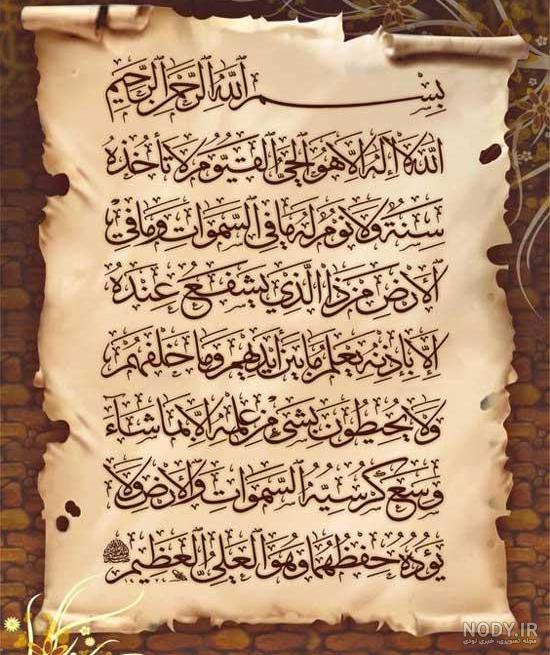 بِسْمِ اللَّهِ الرَّحْمَٰنِ الرَّحِيمِ
اللَّهُ لَا إِلَٰهَ إِلَّا هُوَ الْحَيُّ الْقَيُّومُ لَا تَأْخُذُهُ
سِنَةٌ وَلَا نَوْمٌ لَهُ مَا فِي السَّمَوَاتِ وَمَا فِي
الْأَرْضِ مَنْ ذَا الَّذِي يَشْفَعُ عِنْدَهُ
إِلَّا بِإِذْنِهِ يَعْلَمُ مَا بَيْنَ أَيْدِيهِمْ وَمَا خَلْفَهُمْ
وَلَا يُحِيطُونَ بِشَيْءٍ مِنْ عِلْمِهِ إِلَّا بِمَا شَاءَ
وَسِعَ كُرْسِيُّهُ السَّمَوَاتِ وَالْأَرْضَ وَلَا
يَئُودُهُ حِفْظُهُمَا وَهُوَ الْعَلِيُّ الْعَظِيمُ
NODY.IR
مجله تصویری، خبری نودی